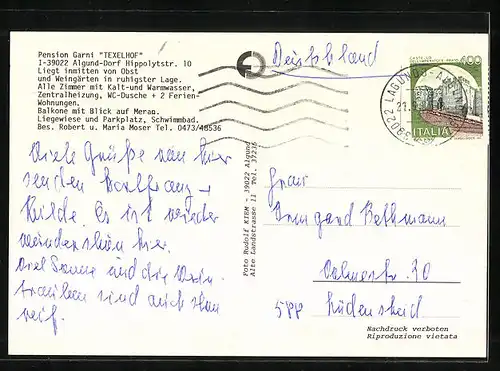 Pension Garni "TEXELHOF"
I-39022 Algund-Dorf Hippolytstr. 10
Liegt inmitten von Obst
und Weingärten in ruhigster Lage.
Alle Zimmer mit Kalt-und Warmwasser,
Zentralheizung, WC-Dusche + 2 Ferien-
Wohnungen.
Balkone mit Blick auf Meran.
Liegewiese und Parkplatz, Schwimmbad.
Bes. Robert u. Maria Moser Tel. 0473/48536
Deutschland
400
ITALIA
39022 LAGUNDO
Viele Grüße von hier
senden
Hilde. Es ist wieder
wunderschön hier.
Viel Sonne und die Wein-
trauben sind auch schon
reif.
Foto Rudolf KIEM - 39022 Algund
Alte Landstrasse 11 Tel. 37236
Frau
Irmgard Bethmann
30
588 Lüdenscheid
Nachdruck verboten
Riproduzione vietata